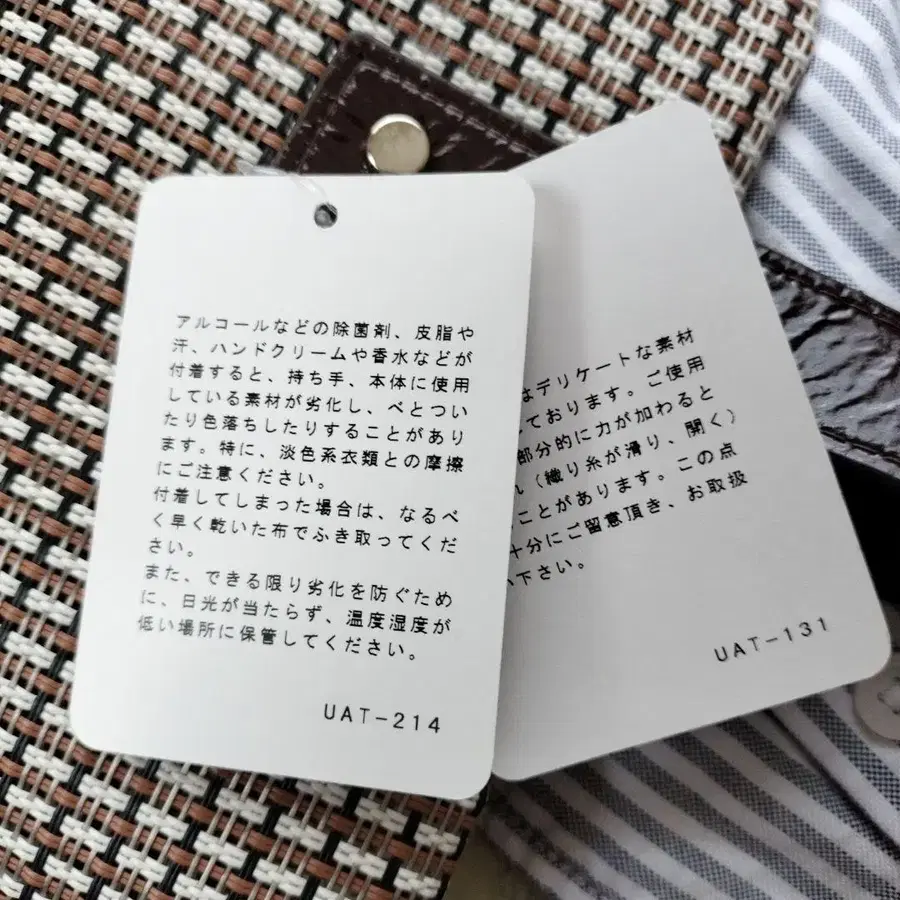 アルコールなどの除菌剤、皮脂や
汗、ハンドクリームや香水などが
付着すると、持ち手、本体に使用
している素材が劣化し、べとつい
たり色落ちしたりすることがあり
ます。特に、淡色系衣類との摩擦
にご注意ください。
付着してしまった場合は、なるべ
く早く乾いた布でふき取ってくだ
さい。
また、できる限り劣化を防ぐため
に、日光が当たらず、温度湿度が
低い場所に保管してください。
UAT-214
はデリケートな素材
ております。ご使用
部分的に力が加わると
れ（織り糸が滑り、開く）
ことがあります。この点
十分にご留意頂き、お取扱
い下さい。
UAT-131